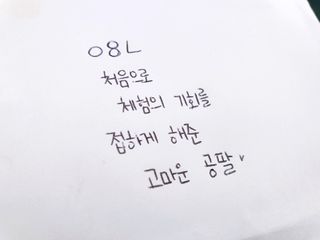 08L
처음으로
체험의 기회를
접하게 해준
고마운 공팔